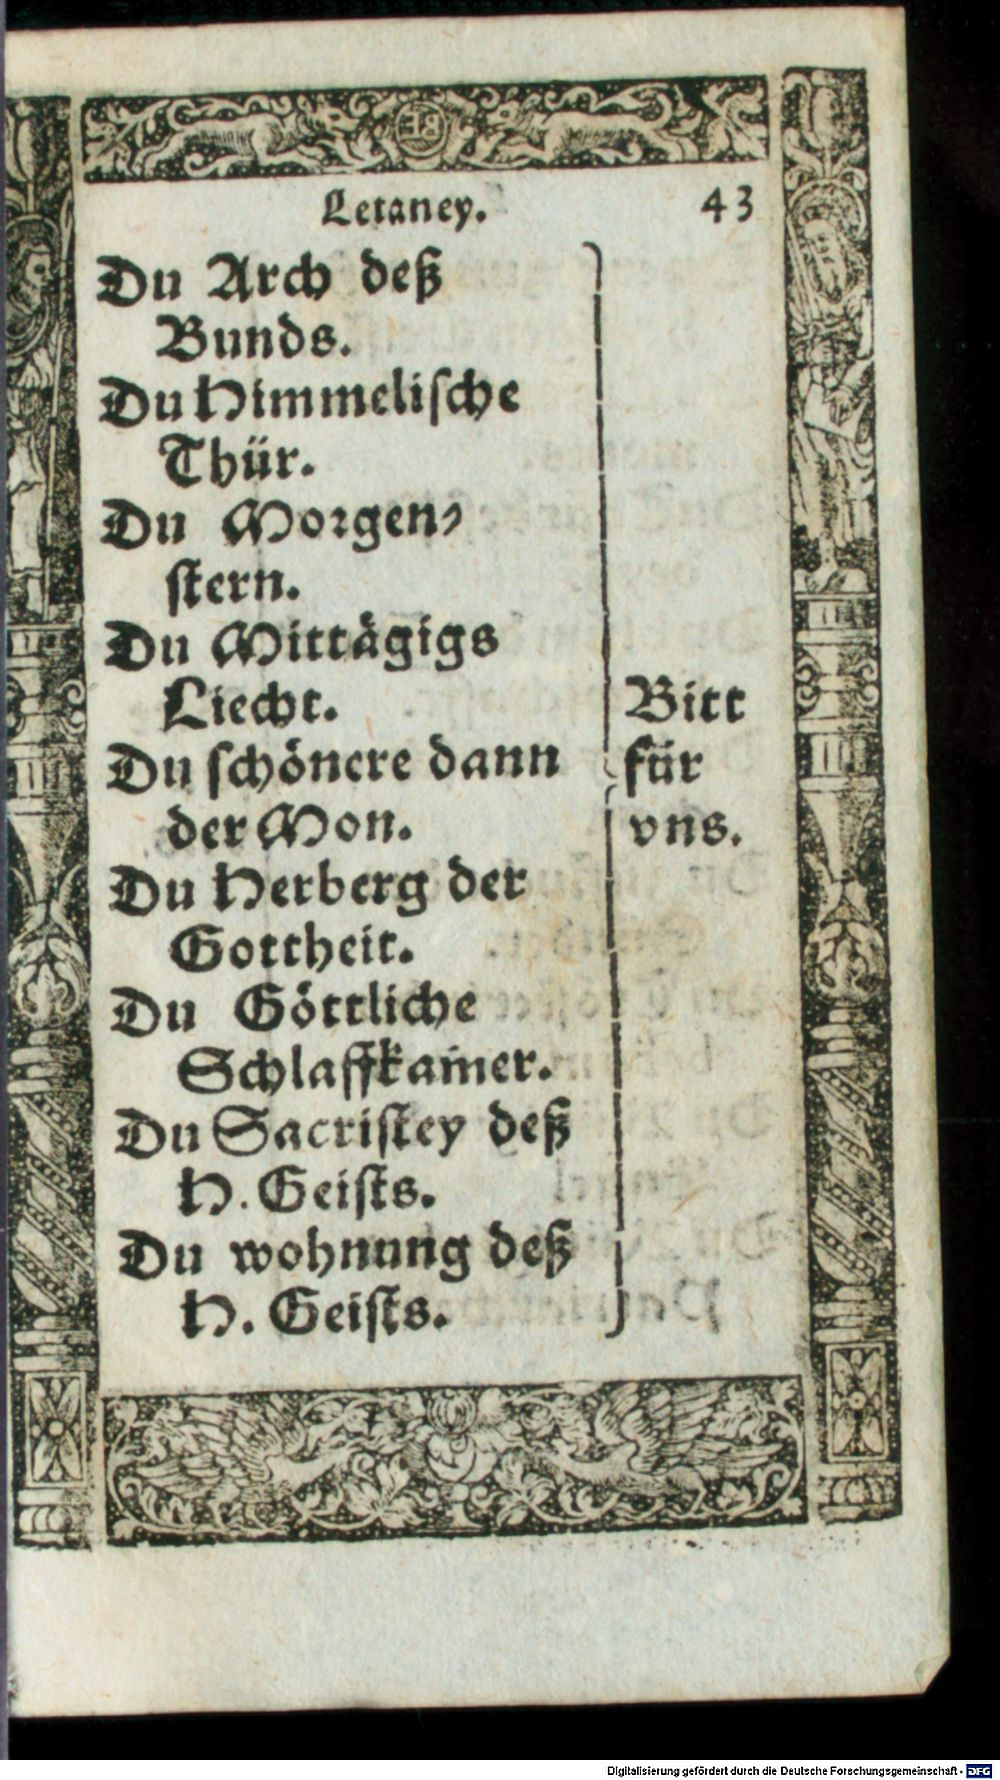 Letaney. 43
Du Arch deß
Bunds.
Du Himmelische
Thür.
Du Morgen⸗
stern.
Du Mittägigs
Liecht.
Du schönere dann
der Mon.
Du Herberg der
Gottheit.
Du Göttliche
Schlaffkam̃er.
Du Sacristey deß
H. Geists.
Du wohnung deß
H. Geists.
Bitt
für
vns.
Digitalisierung gefördert durch die Deutsche Forschungsgemeinschaft - DFG